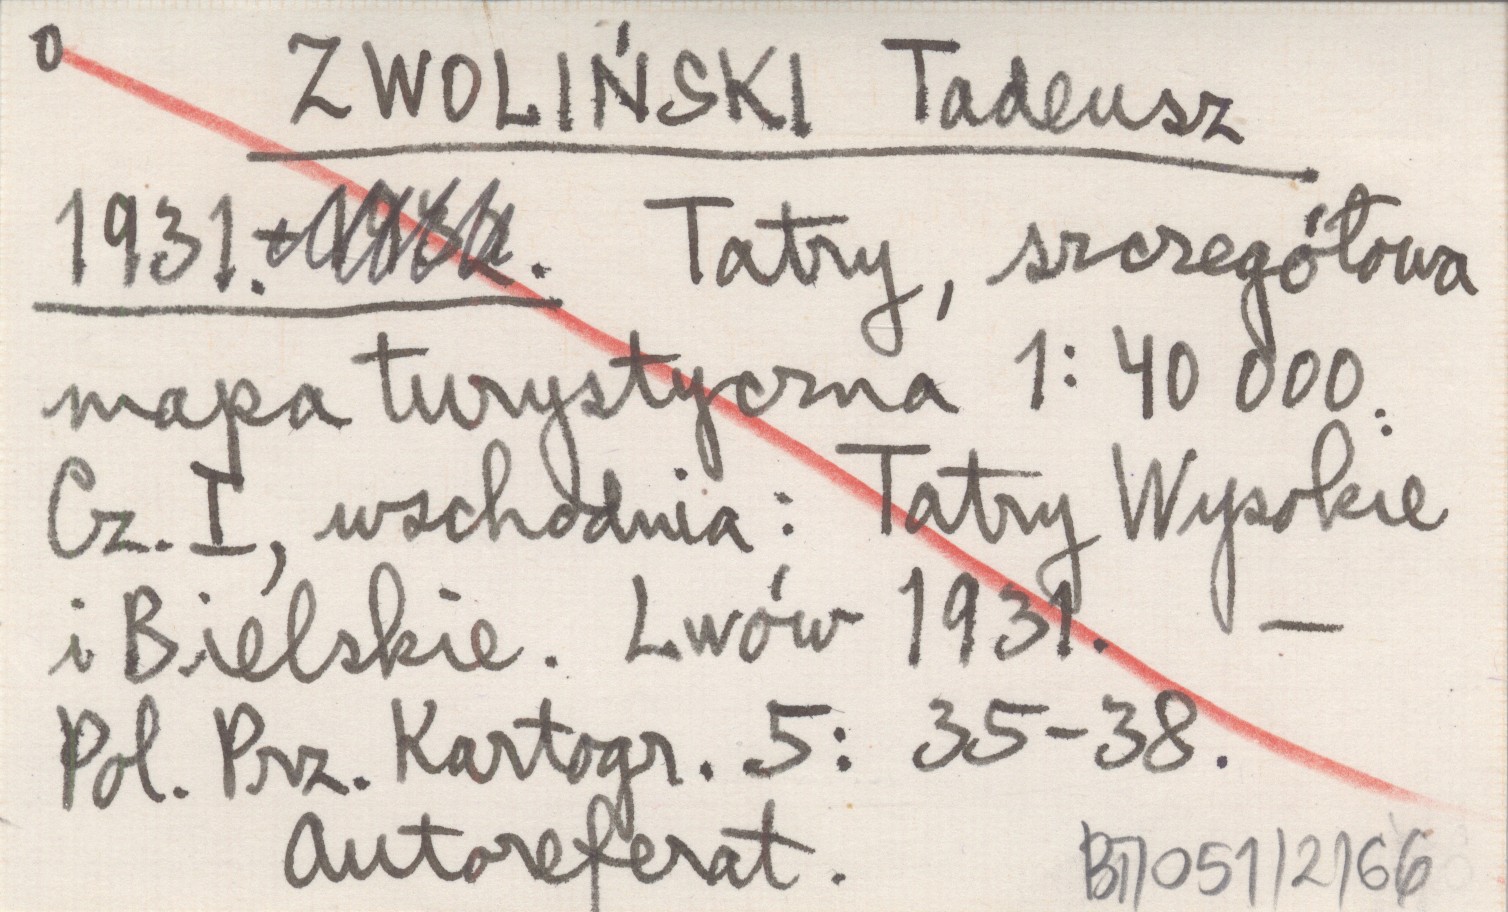 0 ZWOLIŃSKI Tadeusz
1931. Tatry, szczegółowa
mapa turystyczna 1: 40 000.:
Cz. I, wschodnia: Tatry Wysokie
i Bielskie. Lwów 1931. —
Pol. Prz. Kartogr. 5: 35-38.
Autoreferat.
BT/051/2/66